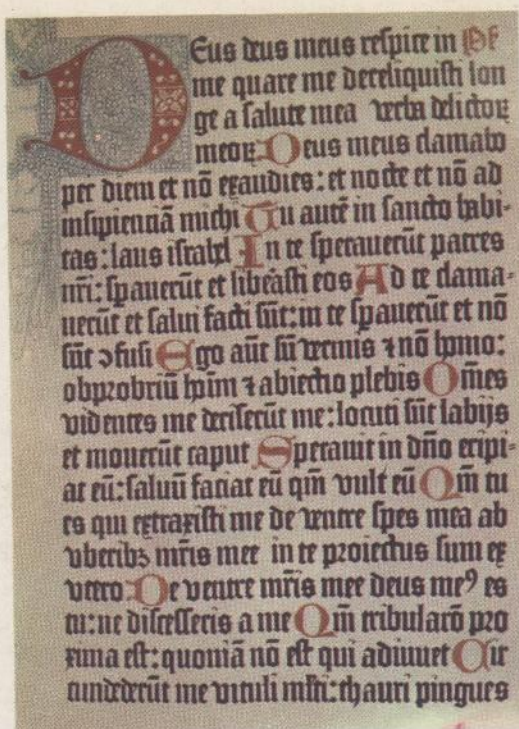 Deus deus meus respice in Ps
me quare me dereliquisti lon
ge a salute mea verba delictoꝝ
meoꝝ Deus meus clamabo
per diem et nō exaudies: et nocte et nō ad
insipienciā michi Tu autē in sancto habi-
tas: laus israhel In te sperauerūt patres
nr̄i: spauerūt et libeasti eos Ad te clama-
uerūt et salui facti sūt: in te spauerūt et nō
sūt ꝯfusi Ego aūt sū vermis ⁊ nō homo:
obprobriū hoīm ⁊ abiectio plebis Om̄es
videntes me deriserūt me: locuti sūt labijs
et mouerūt caput Sperauit in dn̄o eripi-
at eū: saluū faciat eū qm̄ vult eū Qm̄ tu
es qui extraxisti me de ventre spes mea ab
vberibꝫ mr̄is mee in te proiectus sum ex
vtero De ventre mr̄is mee deus meꝰ es
tu: ne discesseris a me Qm̄ tribulacō pro
xima est: quoniā nō est qui adiuuet Cir
cundederūt me vituli ml̄ti: thauri pingues